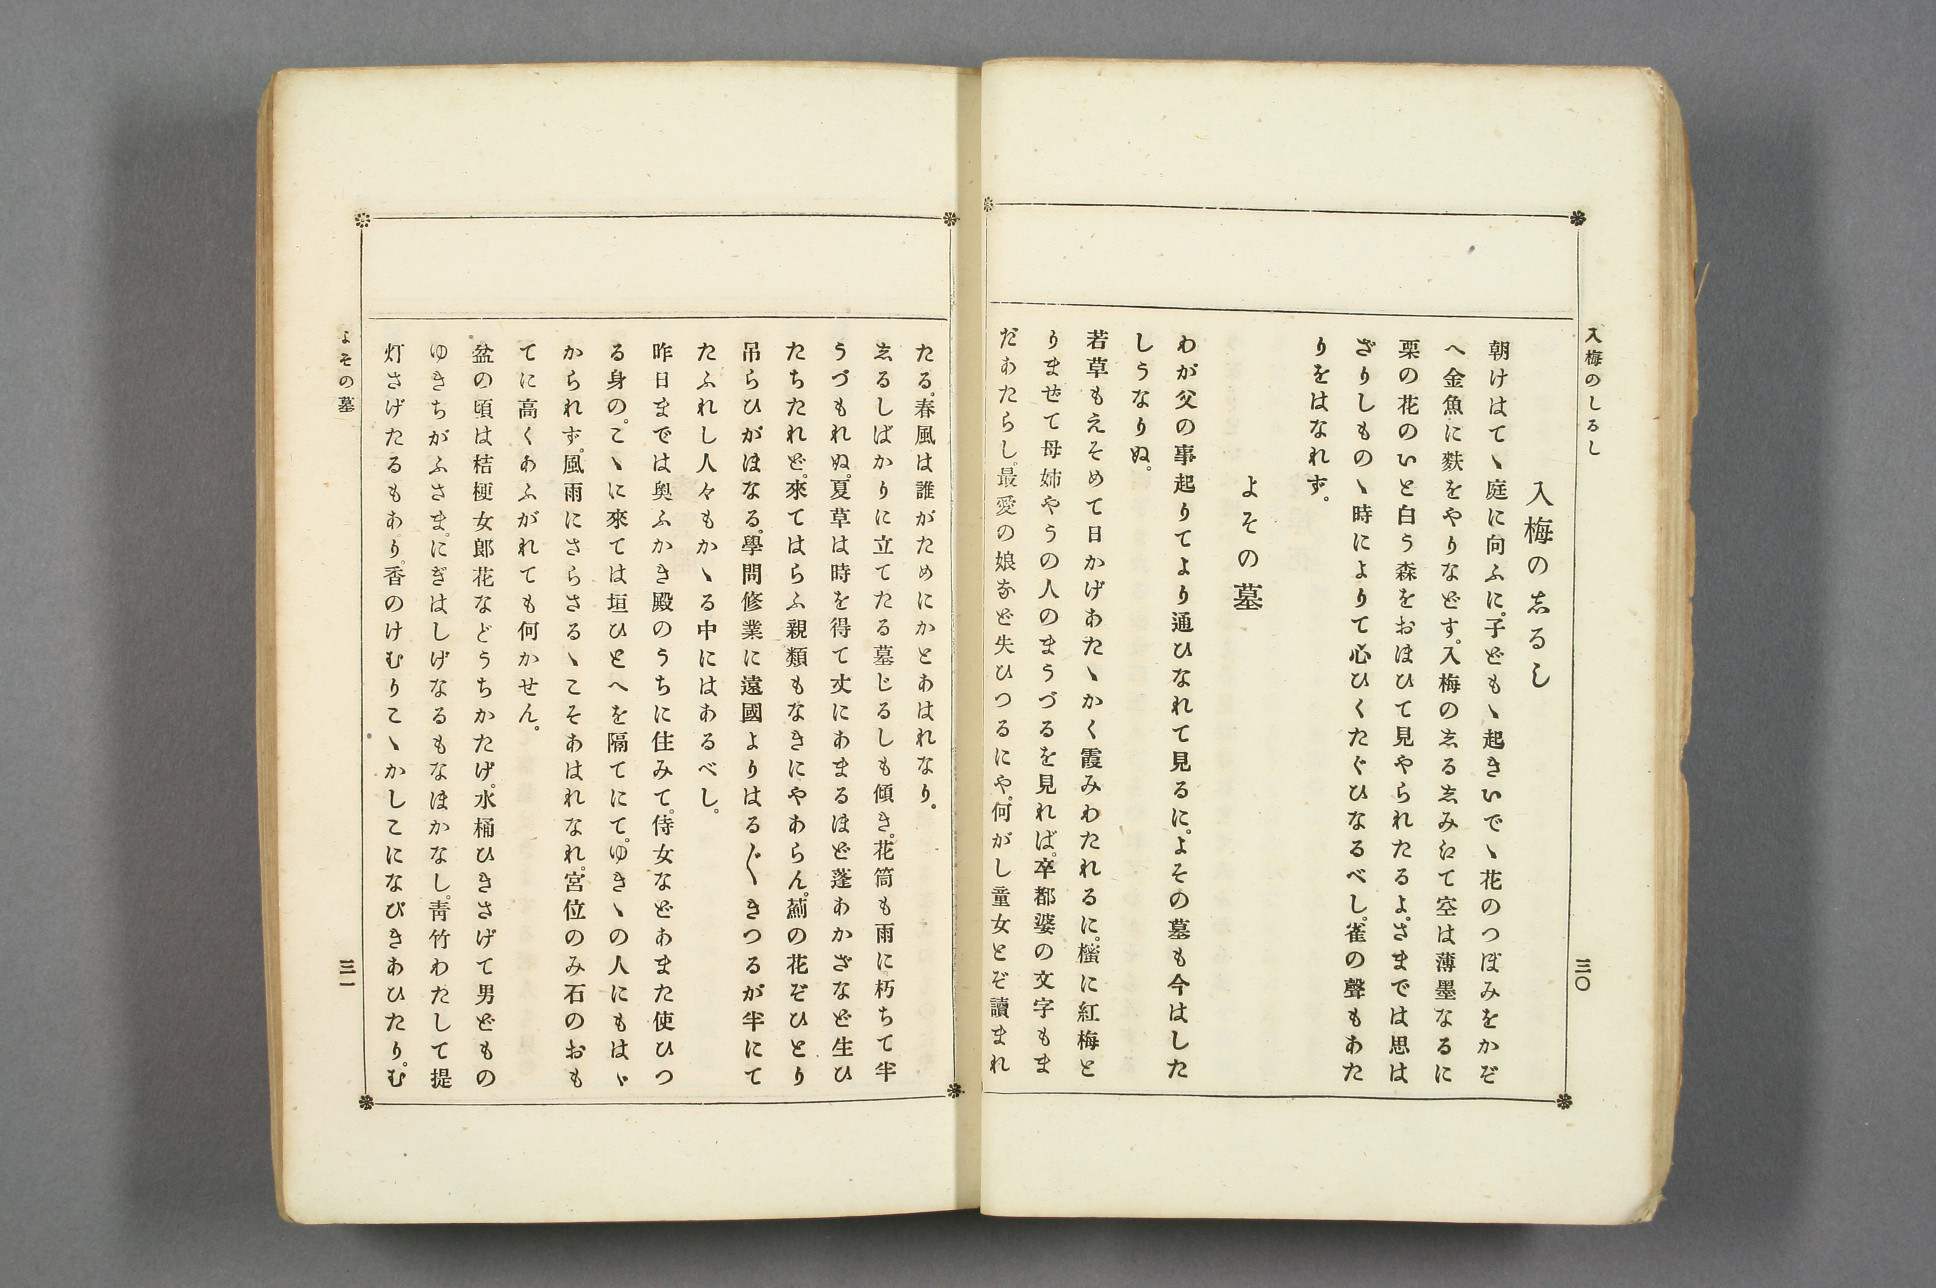 入梅のしるし
三〇
入梅の志るし
朝けはてヽ庭に向ふに。子どもヽ起きいでヽ花のつぼみをかぞ
へ金魚に麩をやりなどす。入梅の志る志みえて空は薄墨なるに
栗の花のいと白う森をおほひて見やられたるよ。さまでは思は
ざりしものヽ時によりて心ひくたぐひなるべし。雀の聲もあた
りをはなれず。
よその墓
わが父の事起りてより通ひなれて見るに。よその墓も今はした
しうなりぬ。
若草もえそめて日かげあたヽかく霞みわたれるに。樒に紅梅と
りませて母姉やうの人のまうづるを見れば。卒都婆の文字もま
だあたらし。最愛の娘など失ひつるにや。何がし童女とぞ讀まれ
たる。春風は誰がためにかとあはれなり。
志るしばかりに立てたる墓じるしも傾き。花筒も雨に朽ちて半
うづもれぬ。夏草は時を得て丈にあまるほど蓬あかざなど生ひ
たちたれど。來てはらふ親類もなきにやあらん。薊の花ぞひとり
吊らひがほなる。學問修業に遠國よりはる〴〵きつるが半にて
たふれし人々もかヽる中にはあるべし。
昨日までは奥ふかき殿のうちに住みて。侍女などあまた使ひつ
る身の。こヽに來ては垣ひとへを隔てにて。ゆきヽの人にもはヾ
かられず。風雨にさらさるヽこそあはれなれ。宮位のみ石のおも
てに高くあふがれても何かせん。
盆の頃は桔梗女郎花などうちかたげ。水桶ひきさげて男どもの
ゆきちがふさま。にぎはしげなるもなほかなし。靑竹わたして提
灯さげたるもあり。香のけむりこヽかしこになびきあひたり。む
よその墓
三一